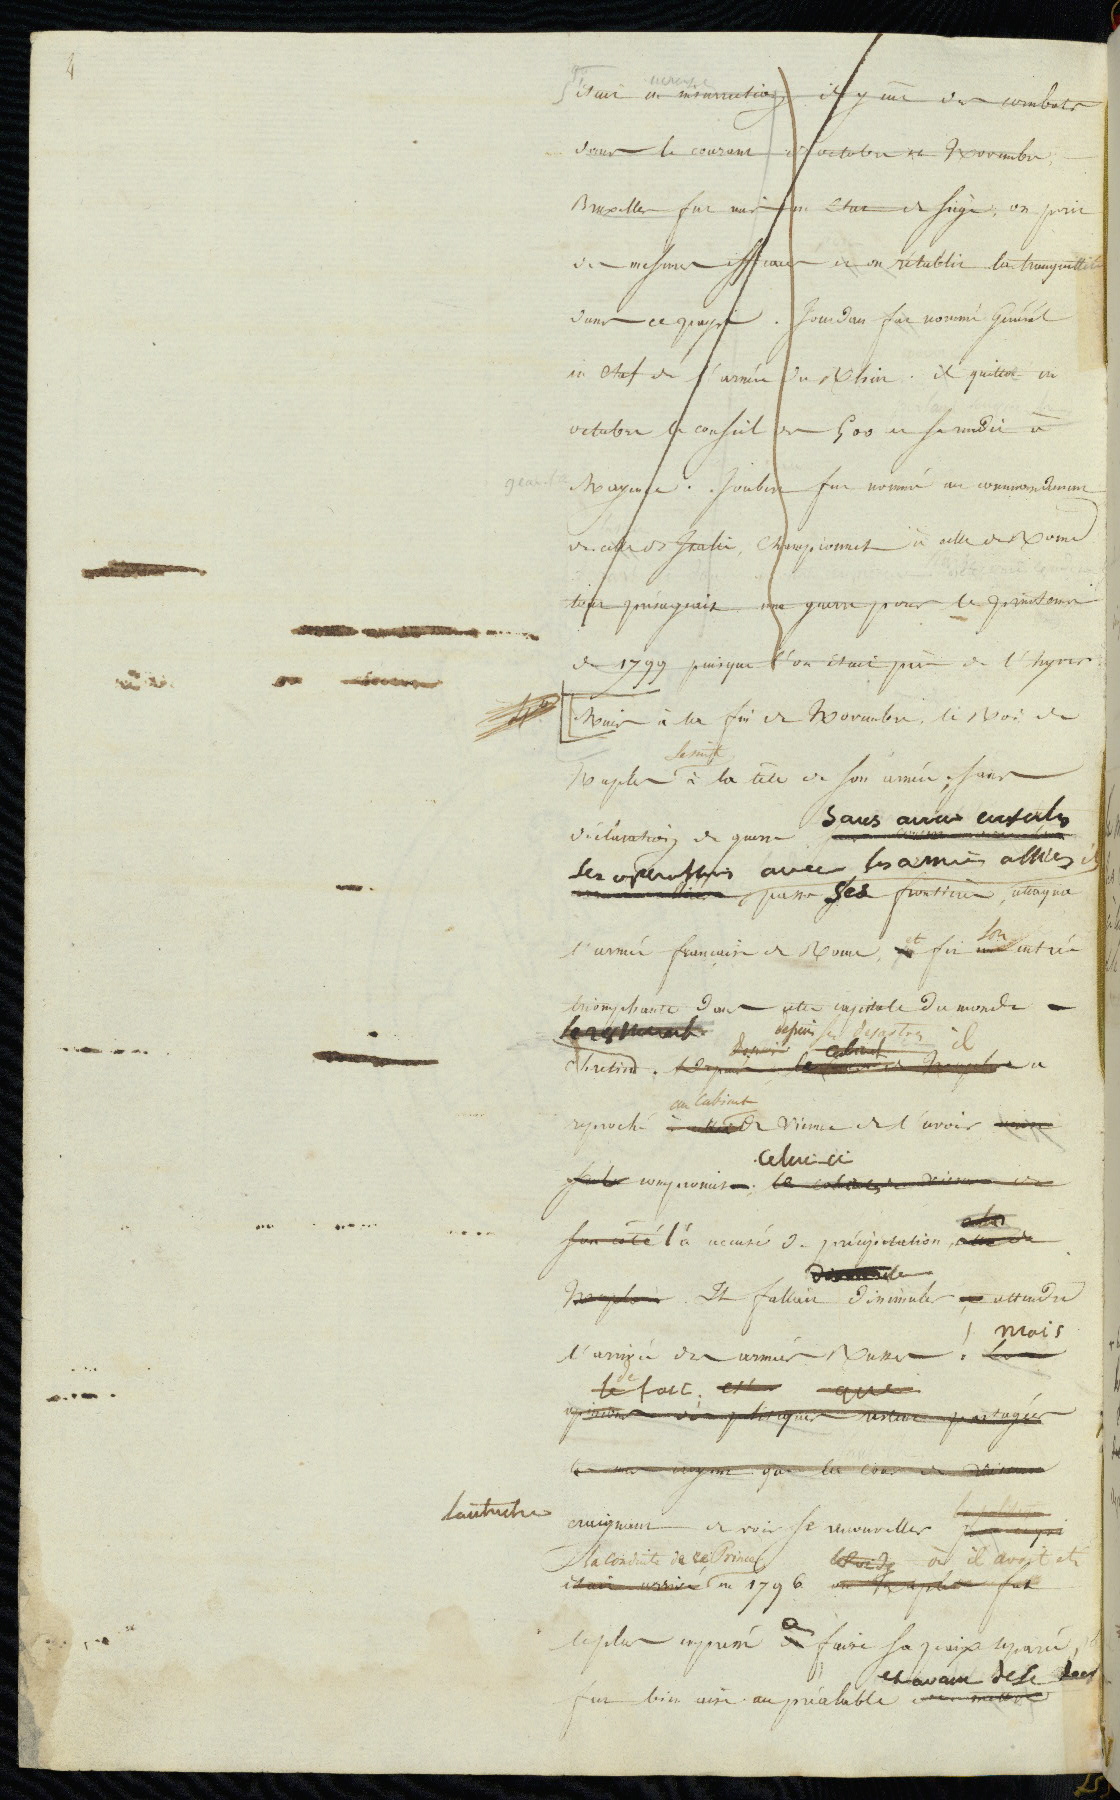 4
était en insurrection il y eut des combats
dans le courant d'octobre et Novembre,
Bruxelles fut mis en Etat de siège; on prit
des mesures efficaces et on rétablit la tranquillité
dans ce pays. Jourdan fut nommé Général
en chef de l'armée du Rhin. il quitta en
octobre le conseil des 500 et se rendit à
Mayence. Joubert fut nommé au commandement
de celle d'Italie, Championnet à celle de Rome
tout présageait une guerre pour le printems
de 1799 puisque l'on était près de l'hyver.
Mais à la fin de Novembre, le Roi de
se mit
Naples à la tête de son armée, sans
déclaration de guerre sans avoir concerté
ses opérations avec les armées alliées il
passe ses frontières, attaqua
l'armée française de Rome, et fit son entrée
triomphante dans cette capitale du monde
chrétien. depuis ses désastres il a
au Cabinet
reproché de Vienne de l'avoir
compromis; celui-ci
son côté l'a accusé de précipitation
Naples. Il fallait dissimuler attendre
l'arrivée des armées Russes! mais
le fait est que
opinions politiques restent partagées
la cour de Vienne
l'autriche craignant de voir se renouveler
la conduite de ce Prince
était arrivé en 1796 où il avait été
le plus empressé à faire sa paix séparée,
fut bien aise au préalable et avant de se